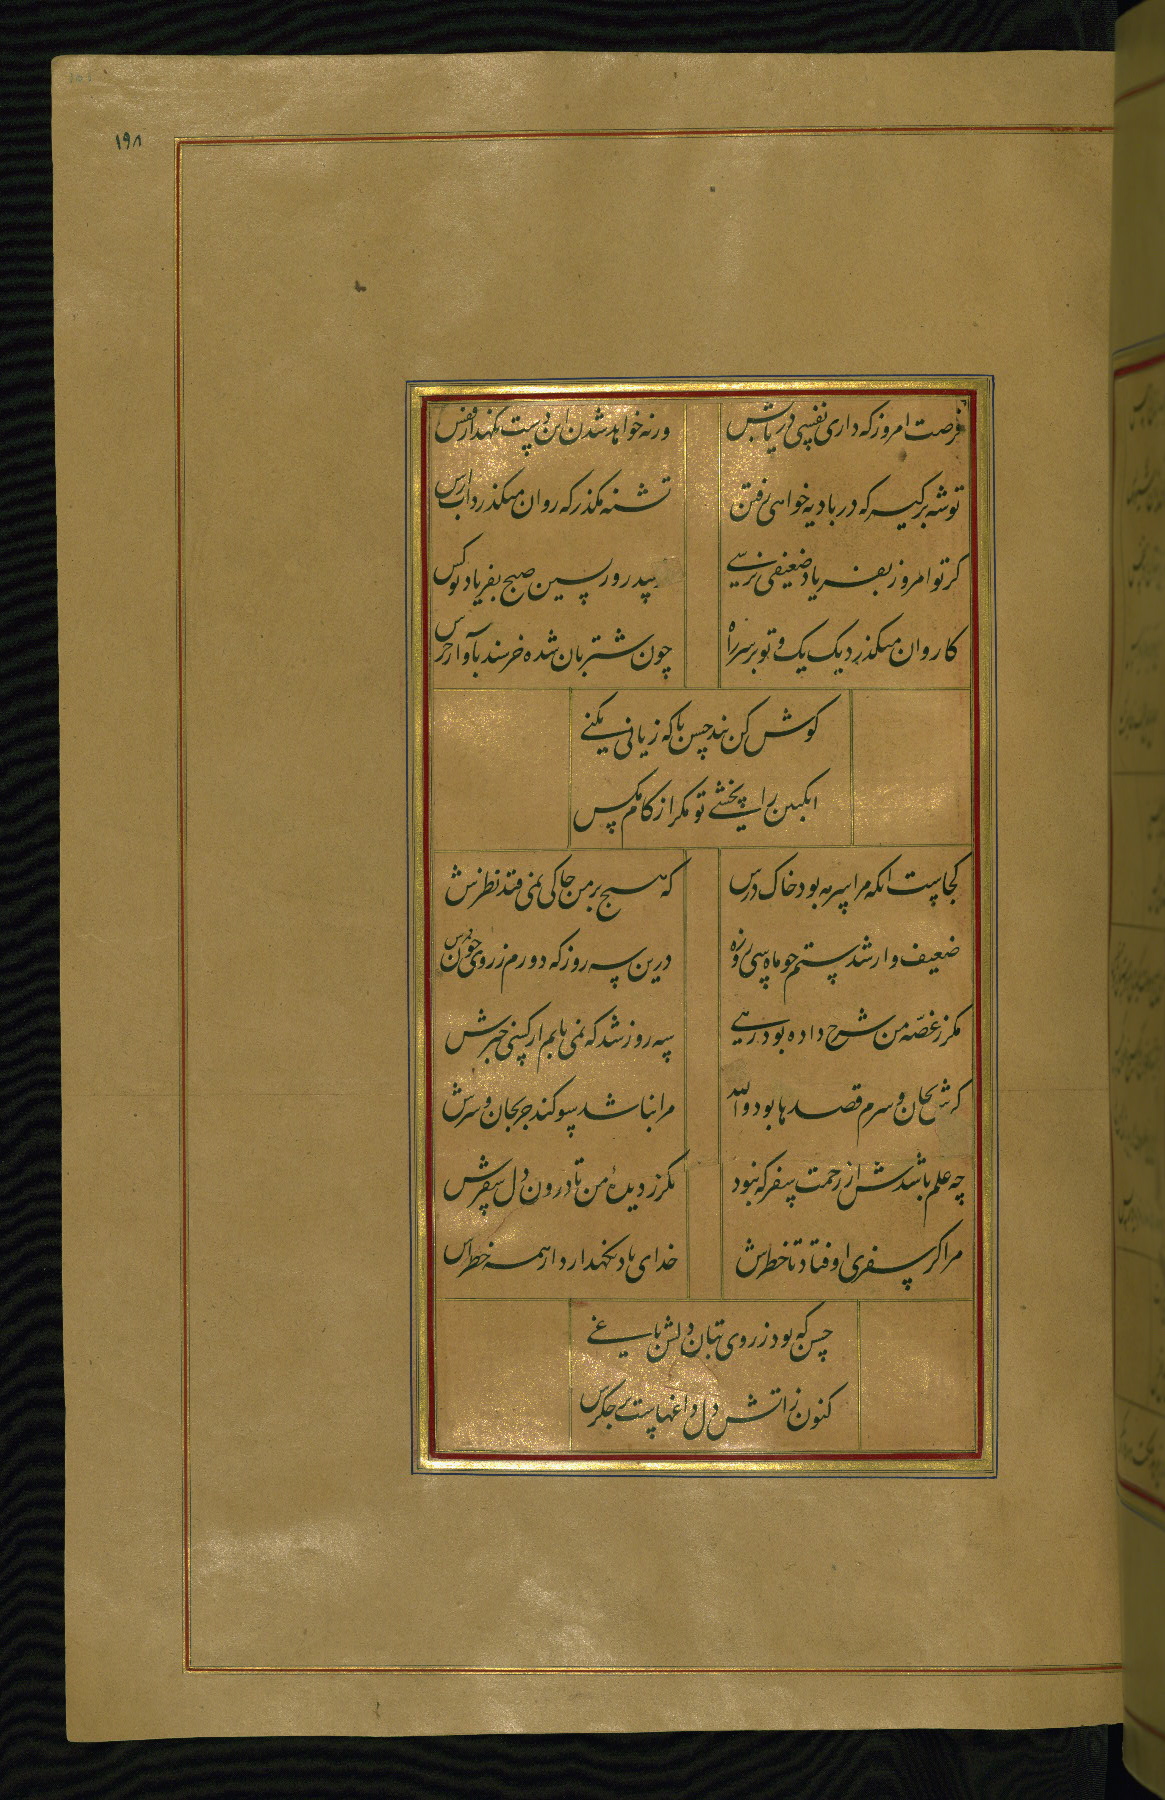 ۱۹۸
فرصت امروز که داری نفسی دریابش
ورنه خواهد شدن این دست نکهدار نفس
توشه برکیر که در بادیه خواهی رفتن
تشنه مکذر که روان میکذرد آب ارس
کرتو امروز بفریاد ضعیفی نرسی
روز پسین هیچ بفریاد تو کس
کاروان میکذرد یک یک و تو بر سر راه
چون شتربان شده خرسند بآواز جرس
کوش کن پند حسن تا که زیانی نکنی
انکبین را چه بخشی تو مکر از کام مکس
کجاست آنکه مرا سرمه بود خاک درش
که هیچ بر من خاکی نمی فتد نظرش
ضعیف وار شدستم چو ماه سی روزه
درین سه روز که دورم ز روی چون قمرش
مکر ز غصه من شرح داده بود رهی
سه روز شد که نمی یابم از کسی خبرش
کرش بجان و سرم قصدها بود والله
مرا نباشد سوکند جز بجان و سرش
چه علم باشدش از زحمت سفر که نبود
مکر ز دیده من تا درون دل سفرش
مرا کر سفری اوفتاد تا خطرش
خدای باد نکهدار از همه خطرش
حسن که بود ز روی بتان دلش باغی
کنون ز آتش دل داغهاست بر جکرش